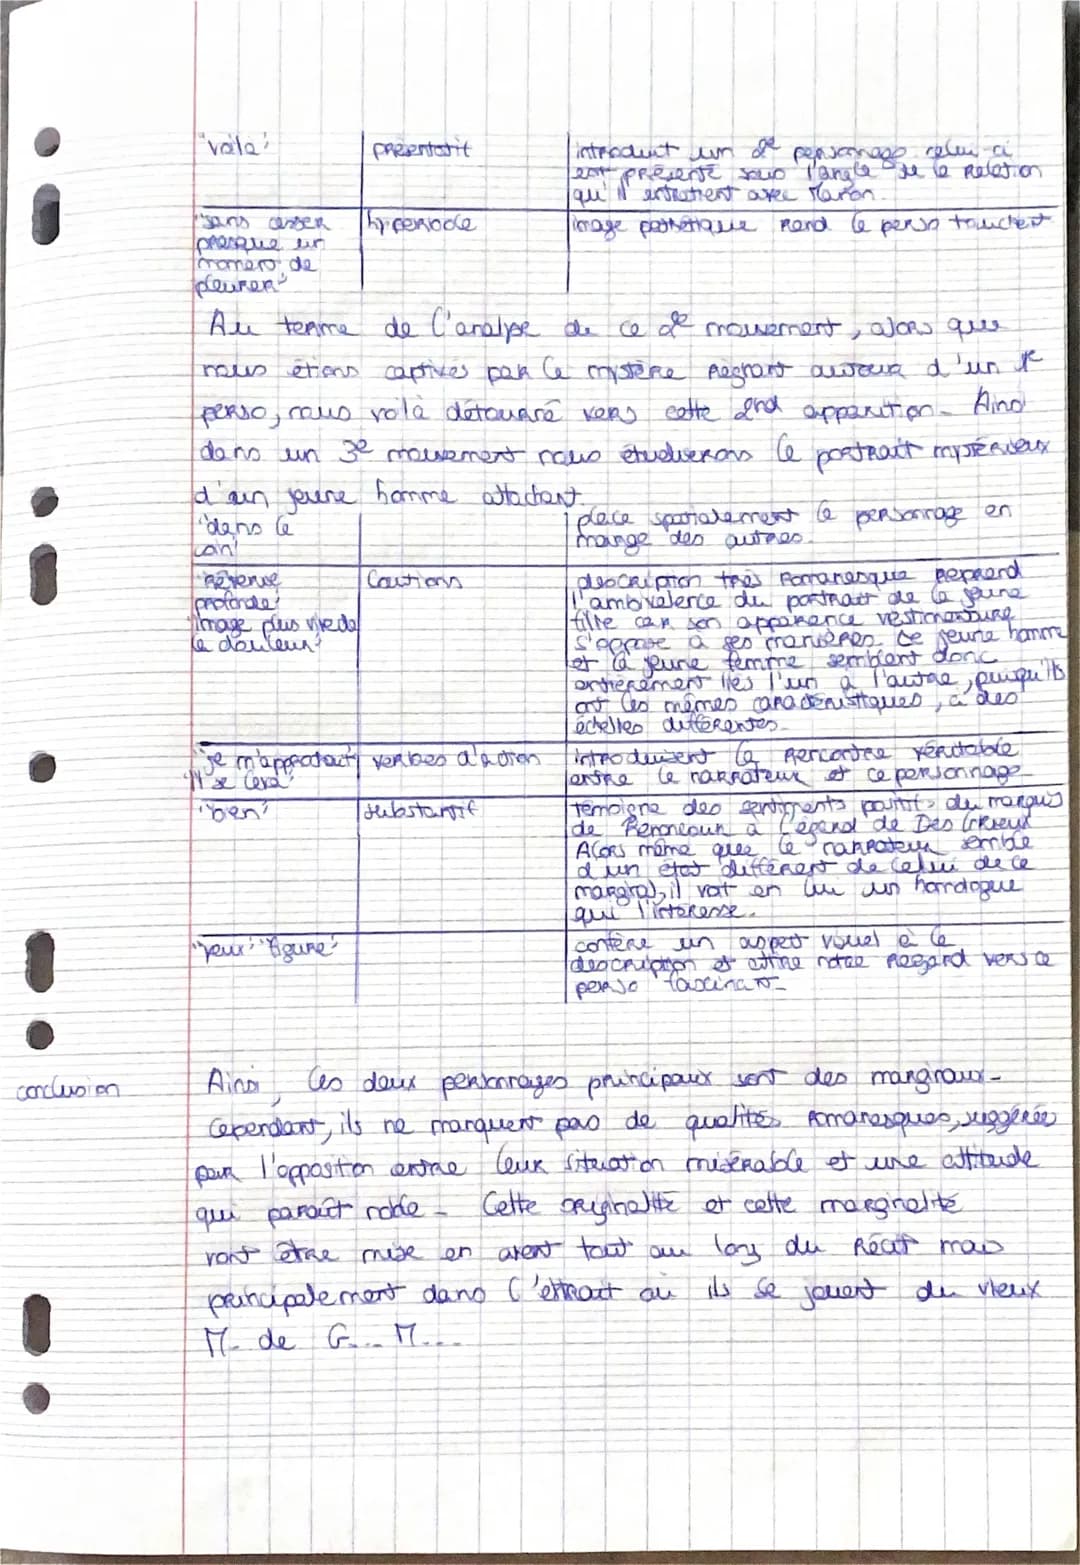 "voilà"
présentatif
introduit un 2e personnage celui-ci
est présenté sous l'angle de la Relation
qu'il entretient avec Manon.
"sans cesser
presque un
momero de
pleurer"
hyperbole
image pathétique rend le perso touchent
Au terme de l'analyse de ce 2e mouvement, alors que
nous étions captivés par le mystère Régnant autour d'un 1e
perso, nous voilà détourné vers cette 2nd apparition. Ainsi
dans un 3e mouvement nous étudierons le portrait mystérieux
d'un jeune homme attachant.
"dans le
coin"
place spatialement le personnage en
marge des autres.
"Rêverie
profonde"
"image plus vive de
la douleur"
description très Romanesque reprend
l'ambivalence du portrait de la jeune
fille car son apparence vestimentaire
s'oppose à ses manières. Ce jeune homme
et la jeune femme semblent donc
entièrement liés l'un à l'autre, puisqu'ils
ont les mêmes caractéristiques, à des
échelles différentes.
"je m'approchait"
"il se leva"
verbes d'action
introduisent la Rencontre véritable
entre le narrateur et ce personnage.
"bien"
substantif
témoigne des sentiments positifs du marquis
de Renoncour à l'égard de Des Grieux
Alors même que le narrateur semble
d'un état différent de celui de ce
marginal, il voit en lui un homologue
qui l'intéresse.
"yeux" "figure"
confère un aspect visuel à la
description et attire notre Regard vers ce
perso fascinant.
conclusion
Ainsi, les deux personnages principaux sont des marginaux.
Cependant, ils ne manquent pas de qualités Romanesques, suggérée
par l'opposition entre leur situation misérable et une attitude
qui paraît noble. Cette originalité et cette marginalité
vont être mise en avent tout au long du Récit mais
principalement dans l'extrait où ils se jouent du vieux
M. de G... M...